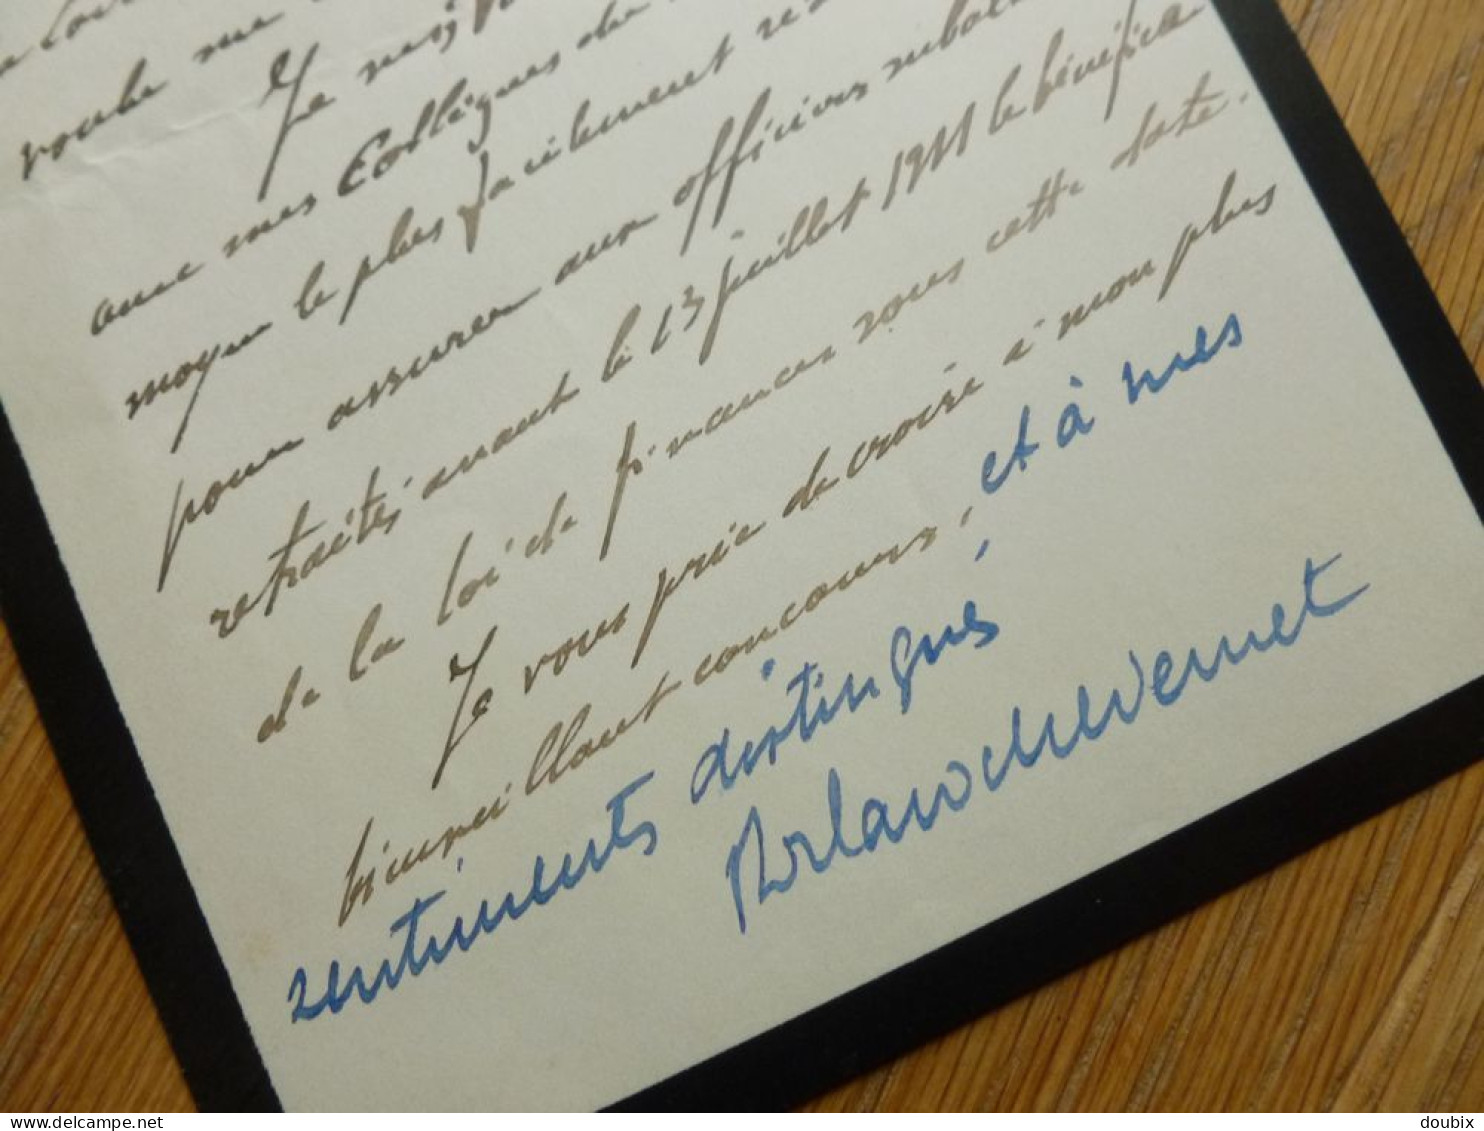 voulu me
Je me
avec mes Collègues du
moyen le plus facilement
pour assurer aux officiers
retraités avant le 13 juillet 1911 le bénéfice
de la loi de finances sous cette date.
Je vous prie de croire à mon plus
bienveillant concours, et à mes
sentiments distingués,
Roland de Vernet
delcampe.net
doubix